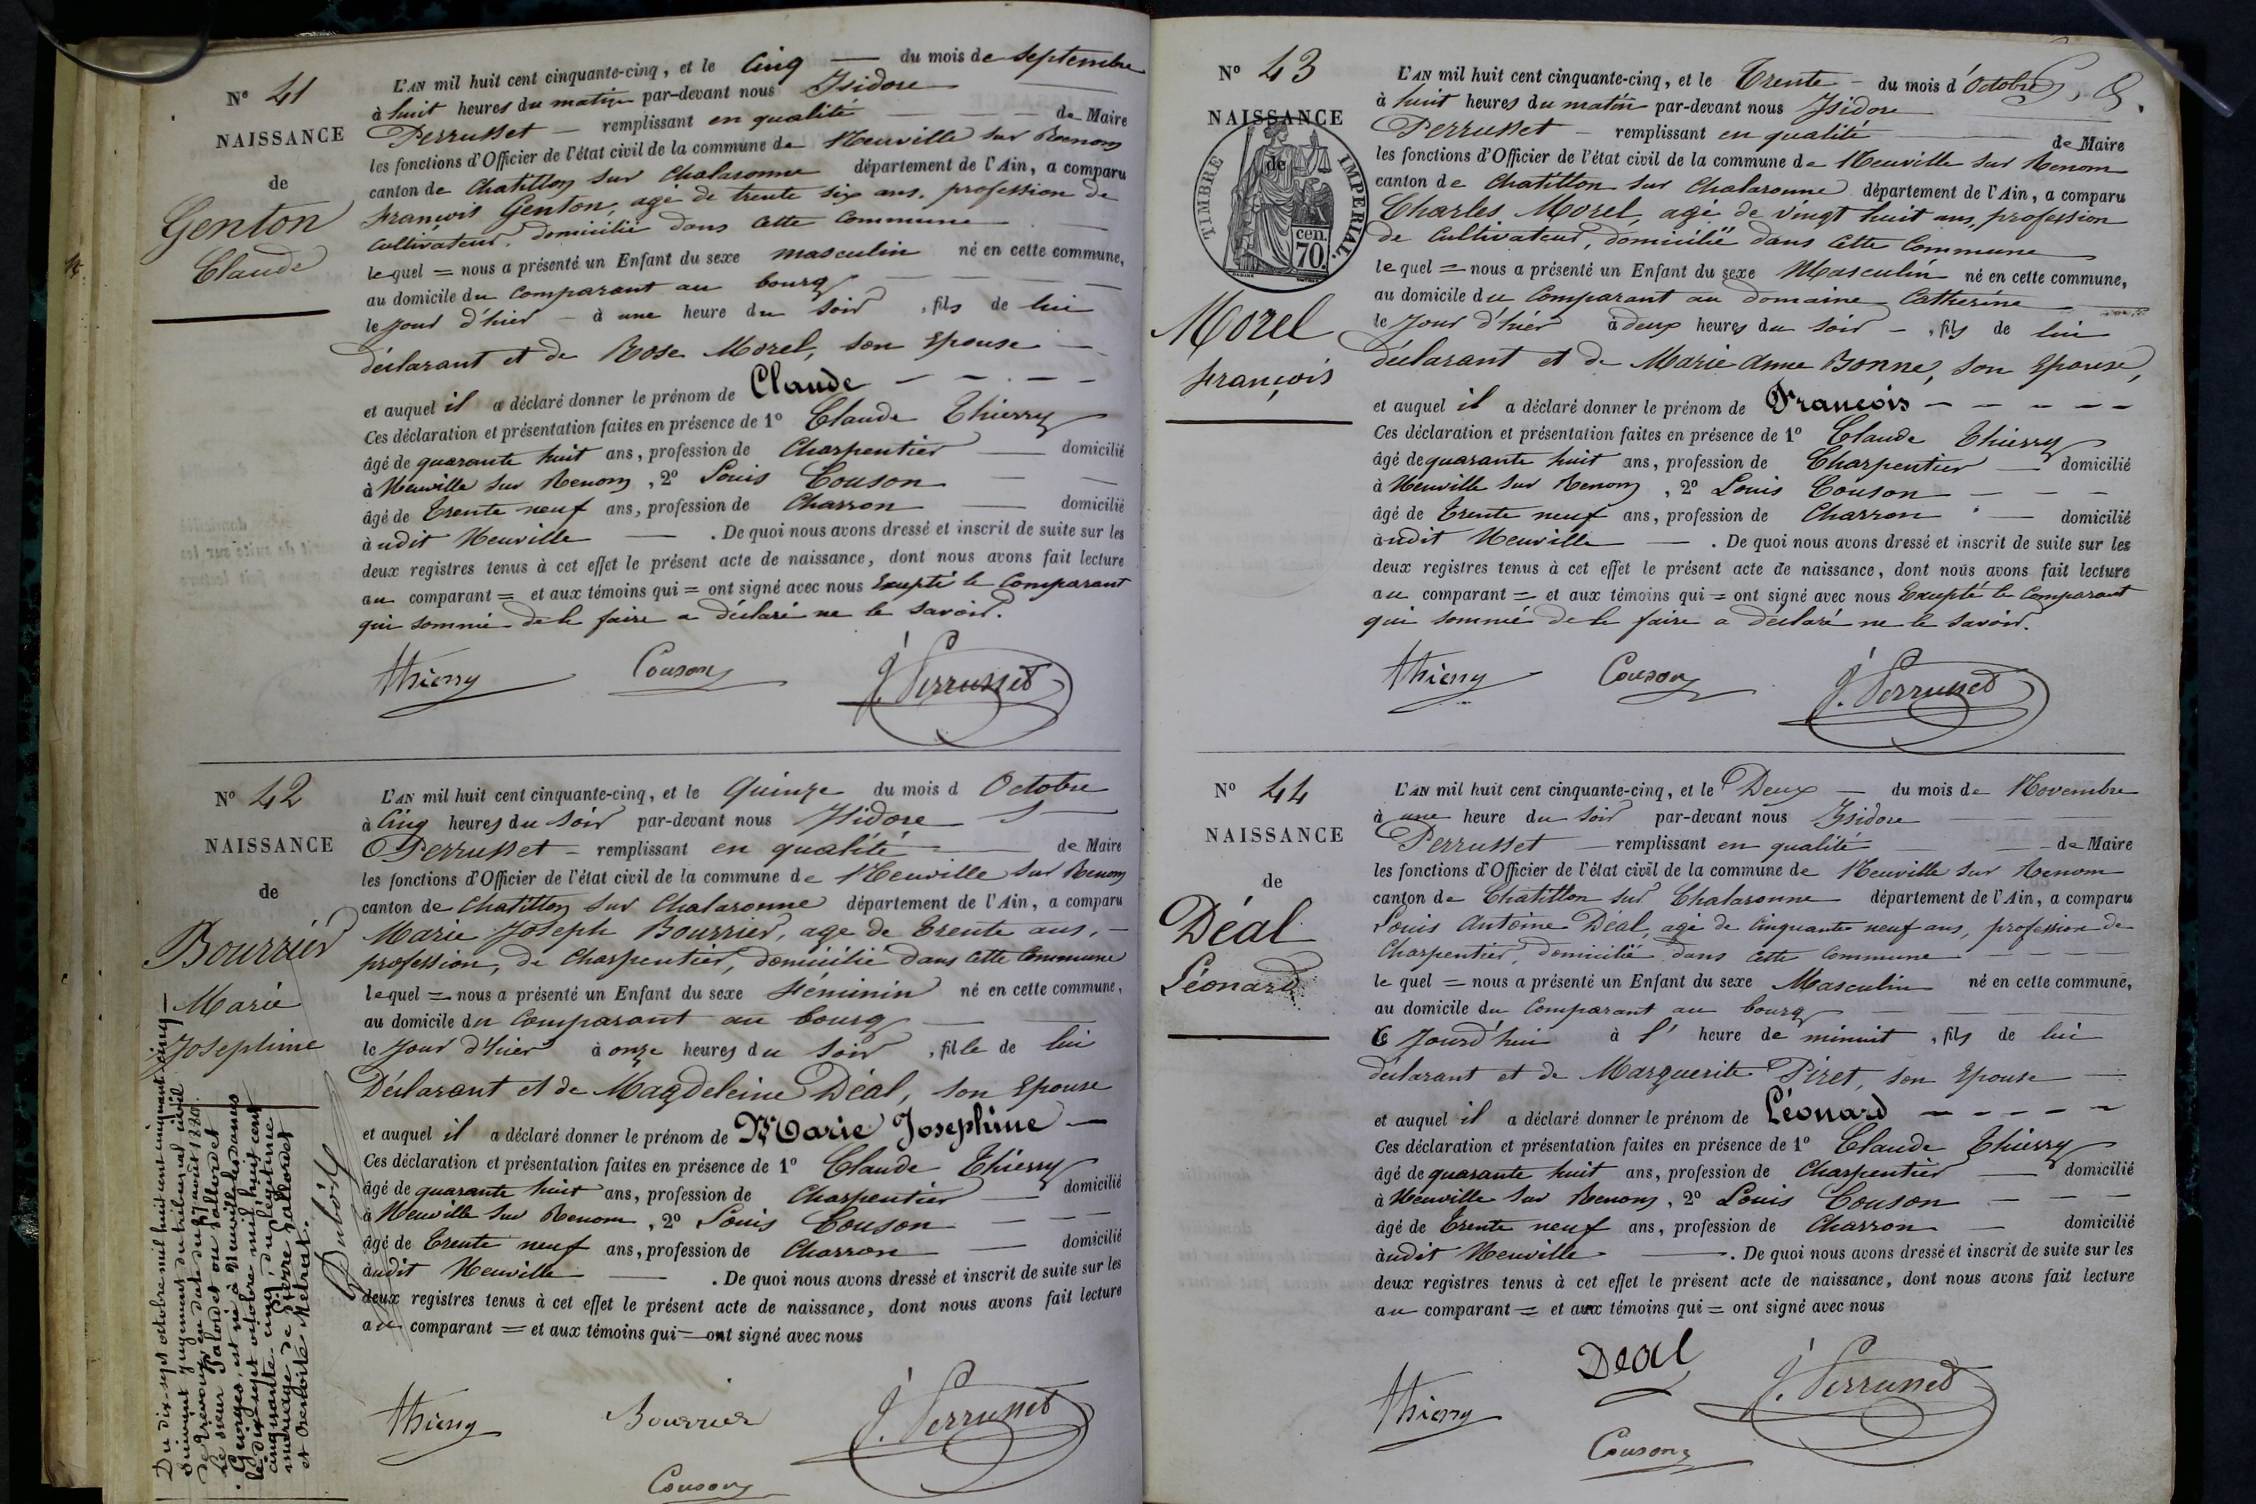 N° 41
NAISSANCE
de
Genton
Claude
L'AN mil huit cent cinquante-cinq, et le Cinq — du mois de Septembre
à huit heures du matin par-devant nous Isidore
Perrusset — remplissant en qualité — de Maire
les fonctions d'Officier de l'état civil de la commune de Neuville sur Renom
canton de Chatillon sur Chalaronne département de l'Ain, a comparu
François Genton, agé de trente six ans, profession de
Cultivateur, domicilié dans cette Commune
lequel = nous a présenté un Enfant du sexe masculin né en cette commune,
au domicile du Comparant au bourg
le jour d'hier — à une heure du Soir, fils de lui
déclarant et de Rose Morel, son Epouse —
et auquel il a déclaré donner le prénom de Claude — — — —
Ces déclaration et présentation faites en présence de 1° Claude Thierry
âgé de quarante huit ans, profession de Charpentier — domicilié
à Neuville sur Renom, 2° Louis Couson —
âgé de Trente neuf ans, profession de Charron — domicilié
àudit Neuville — . De quoi nous avons dressé et inscrit de suite sur les
deux registres tenus à cet effet le présent acte de naissance, dont nous avons fait lecture
au comparant = et aux témoins qui = ont signé avec nous Excepté le Comparant
qui sommé de le faire a déclaré ne le savoir.
Thierry Couson J. Perrusset
N° 42
NAISSANCE
de
Bourrier
Marie
Josephine
L'AN mil huit cent cinquante-cinq, et le Quinze du mois d Octobre
à Cinq heures du Soir par-devant nous Isidore
Perrusset — remplissant en qualité — de Maire
les fonctions d'Officier de l'état civil de la commune de Neuville sur Renom
canton de Chatillon sur Chalaronne département de l'Ain, a comparu
Marie Joseph Bourrier, age de Trente ans, —
profession, de Charpentier, domicilié dans cette Commune
lequel = nous a présenté un Enfant du sexe Féminin né en cette commune,
au domicile du Comparant au bourg —
le Jour d'hier à onze heures du Soir, fille de lui
Déclarant et de Magdeleine Déal, son Epouse
et auquel il a déclaré donner le prénom de Marie Josephine —
Ces déclaration et présentation faites en présence de 1° Claude Thierry
âgé de quarante huit ans, profession de Charpentier — domicilié
à Neuville sur Renom, 2° Louis Couson — — —
âgé de Trente neuf ans, profession de Charron — domicilié
àudit Neuville — . De quoi nous avons dressé et inscrit de suite sur les
deux registres tenus à cet effet le présent acte de naissance, dont nous avons fait lecture
au comparant = et aux témoins qui = ont signé avec nous
Thierry Bourrier J. Perrusset
Couson
Du dix-sept octobre mil huit cent cinquante-cinq —
Suivant jugement du tribunal civil
de Trévoux, en date du août 1880.
Le sieur Palordet ou Sallordet
Georges, est né à Neuville-les-Dames
le dix sept octobre mil huit cent
cinquante-cinq, du légitime
mariage de Pierre Sallordet
et Metrat.
Dubost
N° 43
NAISSANCE
de
TIMBRE IMPERIAL
70 cen.
Morel
François
L'AN mil huit cent cinquante-cinq, et le Trente — du mois d'Octobre
à huit heures du matin par-devant nous Isidore
Perrusset — remplissant en qualité — de Maire
les fonctions d'Officier de l'état civil de la commune de Neuville sur Renom
canton de Chatillon sur Chalaronne département de l'Ain, a comparu
Charles Morel, agé de vingt huit ans, profession
de Cultivateur, domicilié dans cette Commune
lequel = nous a présenté un Enfant du sexe Masculin né en cette commune,
au domicile du Comparant au domaine Catherine
le Jour d'hier à deux heures du Soir —, fils de lui
déclarant et de Marie Anne Bonne, son Epouse,
et auquel il a déclaré donner le prénom de François — — — — —
Ces déclaration et présentation faites en présence de 1° Claude Thierry
âgé de quarante huit ans, profession de Charpentier — domicilié
à Neuville sur Renom, 2° Louis Couson — — —
âgé de Trente neuf ans, profession de Charron — domicilié
àudit Neuville — . De quoi nous avons dressé et inscrit de suite sur les
deux registres tenus à cet effet le présent acte de naissance, dont nous avons fait lecture
au comparant = et aux témoins qui = ont signé avec nous Excepté le Comparant
qui sommé de le faire a déclaré ne le savoir.
Thierry Couson J. Perrusset
N° 44
NAISSANCE
de
Déal
Léonard
L'AN mil huit cent cinquante-cinq, et le Deux — du mois de Novembre
à une heure du Soir par-devant nous Isidore
Perrusset — remplissant en qualité — de Maire
les fonctions d'Officier de l'état civil de la commune de Neuville sur Renom
canton de Chatillon sur Chalaronne département de l'Ain, a comparu
Louis Antoine Déal, agé de Cinquante neuf ans, profession de
Charpentier, domicilié dans cette Commune — — —
lequel = nous a présenté un Enfant du sexe Masculin né en cette commune,
au domicile du Comparant au bourg —
Ce Jourd'hui à l' heure de minuit, fils de lui
déclarant et de Marguerite Piret, son Epouse —
et auquel il a déclaré donner le prénom de Léonard — — — — —
Ces déclaration et présentation faites en présence de 1° Claude Thierry
âgé de quarante huit ans, profession de Charpentier — domicilié
à Neuville sur Renom, 2° Louis Couson — — —
âgé de Trente neuf ans, profession de Charron — domicilié
àudit Neuville — . De quoi nous avons dressé et inscrit de suite sur les
deux registres tenus à cet effet le présent acte de naissance, dont nous avons fait lecture
au comparant = et aux témoins qui = ont signé avec nous
Thierry Deal J. Perrusset
Couson